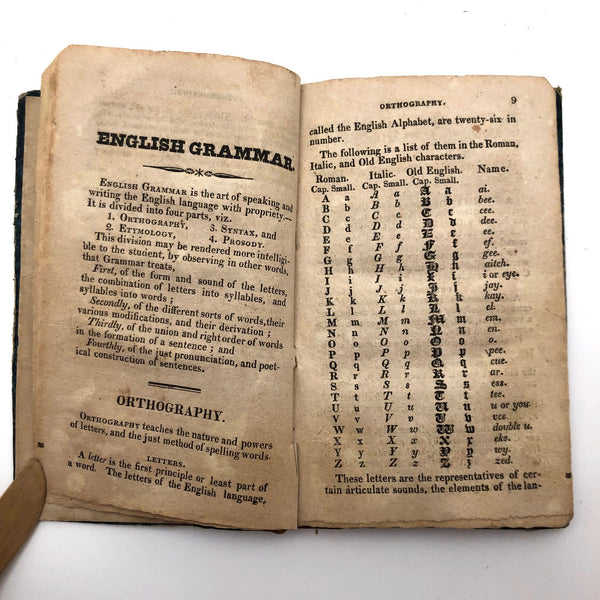 ENGLISH GRAMMAR.
ENGLISH GRAMMAR is the art of speaking and
writing the English language with propriety.—
It is divided into four parts, viz.
1. ORTHOGRAPHY, 3. SYNTAX, and
2. ETYMOLOGY, 4. PROSODY.
This division may be rendered more intelligi-
ble to the student, by observing in other words,
that Grammar treats,
First, of the form and sound of the letters,
the combination of letters into syllables, and
syllables into words;
Secondly, of the different sorts of words, their
various modifications, and their derivation;
Thirdly, of the union and right order of words
in the formation of a sentence; and
Fourthly, of the just pronunciation, and poet-
ical construction of sentences.
ORTHOGRAPHY.
ORTHOGRAPHY teaches the nature and powers
of letters, and the just method of spelling words.
LETTERS.
A letter is the first principle or least part of
a word. The letters of the English language,
ORTHOGRAPHY. 9
called the English Alphabet, are twenty-six in
number.
The following is a list of them in the Roman,
Italic, and Old English characters.
Roman. Italic. Old English. Name.
Cap. Small. Cap. Small. Cap. Small.
A a A a A a ai.
B b B b B b bee.
C c C c C c cee.
D d D d D d dee.
E e E e E e ee.
F f F f F f ef.
G g G g G g gee.
H h H h H h aitch.
I i I i I i i or eye.
J j J j J j jay.
K k K k K k kay.
L l L l L l el.
M m M m M m em.
N n N n N n en.
O o O o O o o.
P p P p P p pee.
Q q Q q Q q cue.
R r R r R r ar.
S s S s S s ess.
T t T t T t tee.
U u U u U u u or you
V v V v V v vee.
W w W w W w double u.
X x X x X x eks.
Y y Y y Y y wy.
Z z Z z Z z zed.
These letters are the representatives of cer-
tain articulate sounds, the elements of the lan-